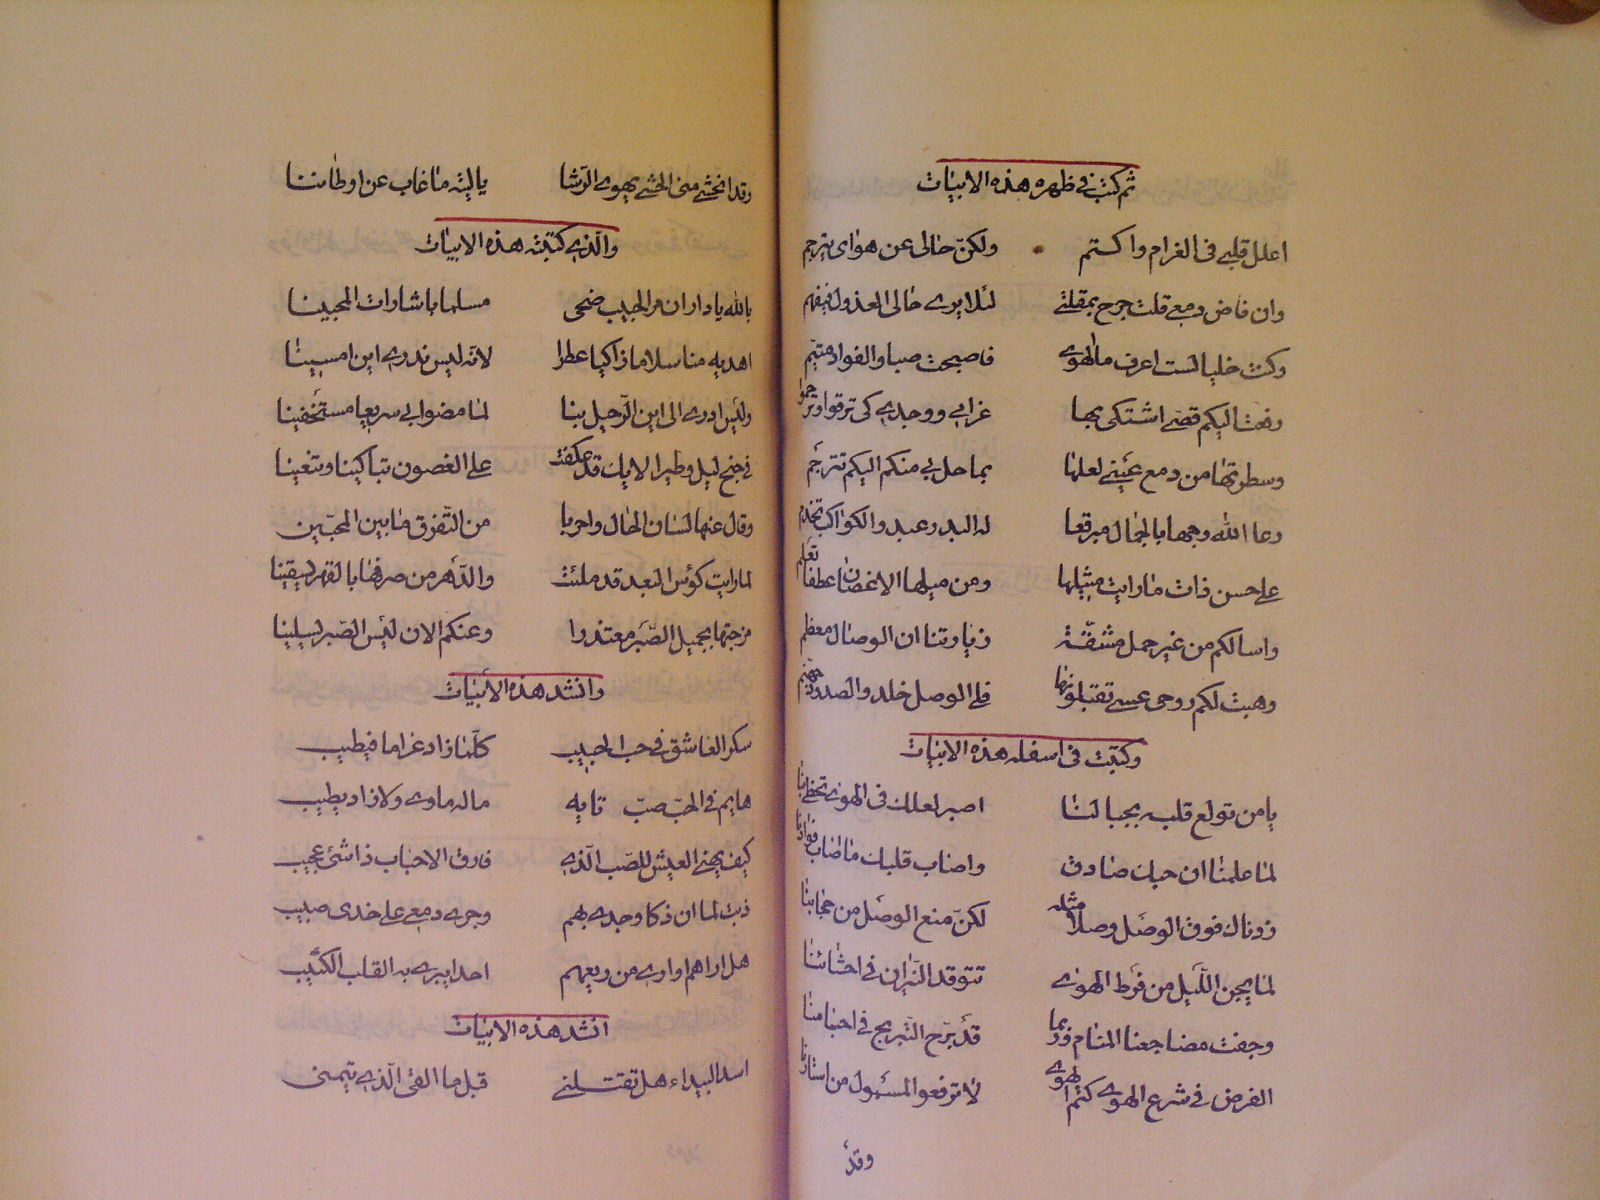 ثم كتبت في ظهره هذه الابيات
اعلل قلبي في الغرام واكتم ولكنّ حالى عن هواى يترجم
وان فاض دمعي قلت جرح بمقلتي لئلا يرى حالى العذول فيفهم
وكنت خليا لست اعرف ما الهوى فاصبحت صبا والفواد متيّم
رفعت اليكم قصّتي اشتكى بها غرامي ووجدي كى ترقوا وترحموا
وسطرتها من دمع عيني لعلها بما حل بي منكم اليكم تترجم
رعا الله وجها بالجمال مبرقعا له البدر عبد والكواكب تخدم
على حسن ذات ما رايت مثيلها ومن ميلها الاغصان عطفا تعلم
واسالكم من غير حمل مشقّة زيارتنا ان الوصال معظم
وهبت لكم روحى عسى تقبلونها فلي الوصل خلد والصدود جهنم
وكتبت فى اسفله هذه الابيات
يا من تولع قلبه بجمالنا اصبر لعلك فى الهوى تحظى بنا
لما علمنا ان حبك صادق واصاب قلبك ما اصاب فوادنا
زدناك فوق الوصل وصلا مثله لكنّ منع الوصل من حجابنا
لما يجن اللّيل من فرط الهوى تتوقد النّيران في احشائنا
وجفت مضاجعنا المنام وربما قد برّح التّبريح في اجسامنا
الفرض في شرع الهوى كتم الهوى لا ترفعو المسبول من استارنا
وقد
وقد انحشى منى الحشى بهوى الرّشا ياليته ما غاب عن اوطاننا
والّذي كتبته هذه الابيات
بالله يا دار ان مر الحبيب ضحى مسلما باشارات المحبينا
اهديه منا سلاما زاكيا عطرا لانّه ليس ندرى اين امسينا
وليس ادرى الى اين الرّحيل بنا لما مضوا بي سريعا مستخفينا
في جنح ليل وطير الايك قد عكفت على الغصون تباكينا وتنعينا
وقال عنها لسان الحال واحربا من التّفرّق ما بين المحبّين
لما رايت كؤس البعد قد ملئت والدّهر من صرفها بالقهر يسقينا
مزجتها بجميل الصّبر معتذرا وعنكم الان ليس الصّبر يسلينا
وانشد هذه الأبيات
سكر العاشق في حب الحبيب كلّما زاد غراما فيطيب
هايم في الحبّ صبّ تايه ماله ماوى ولا زاد يطيب
كيف يهني العيش للصّب الّذي فارق الاحباب ذا شئ عجيب
ذبت لما ان ذكا وجدى بهم وجرى دمعي على خدى صبيب
هل اراهم او ارى من ربعهم احدا يبرى به القلب الكئيب
انشد هذه الابيات
اسد البيداء هل تقتلني قبل ما القى الّذي تيمنى